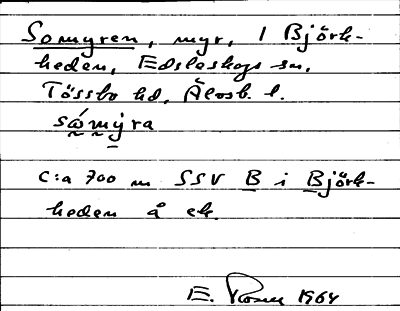 Somyren, myr, 1 Björk-
heden, Edsleskogs sn,
Tössbo hd, Älvsb. l.
sώmy̗ra
C:a 700 m SSV B i Björk-
heden å ek.
E. 1964